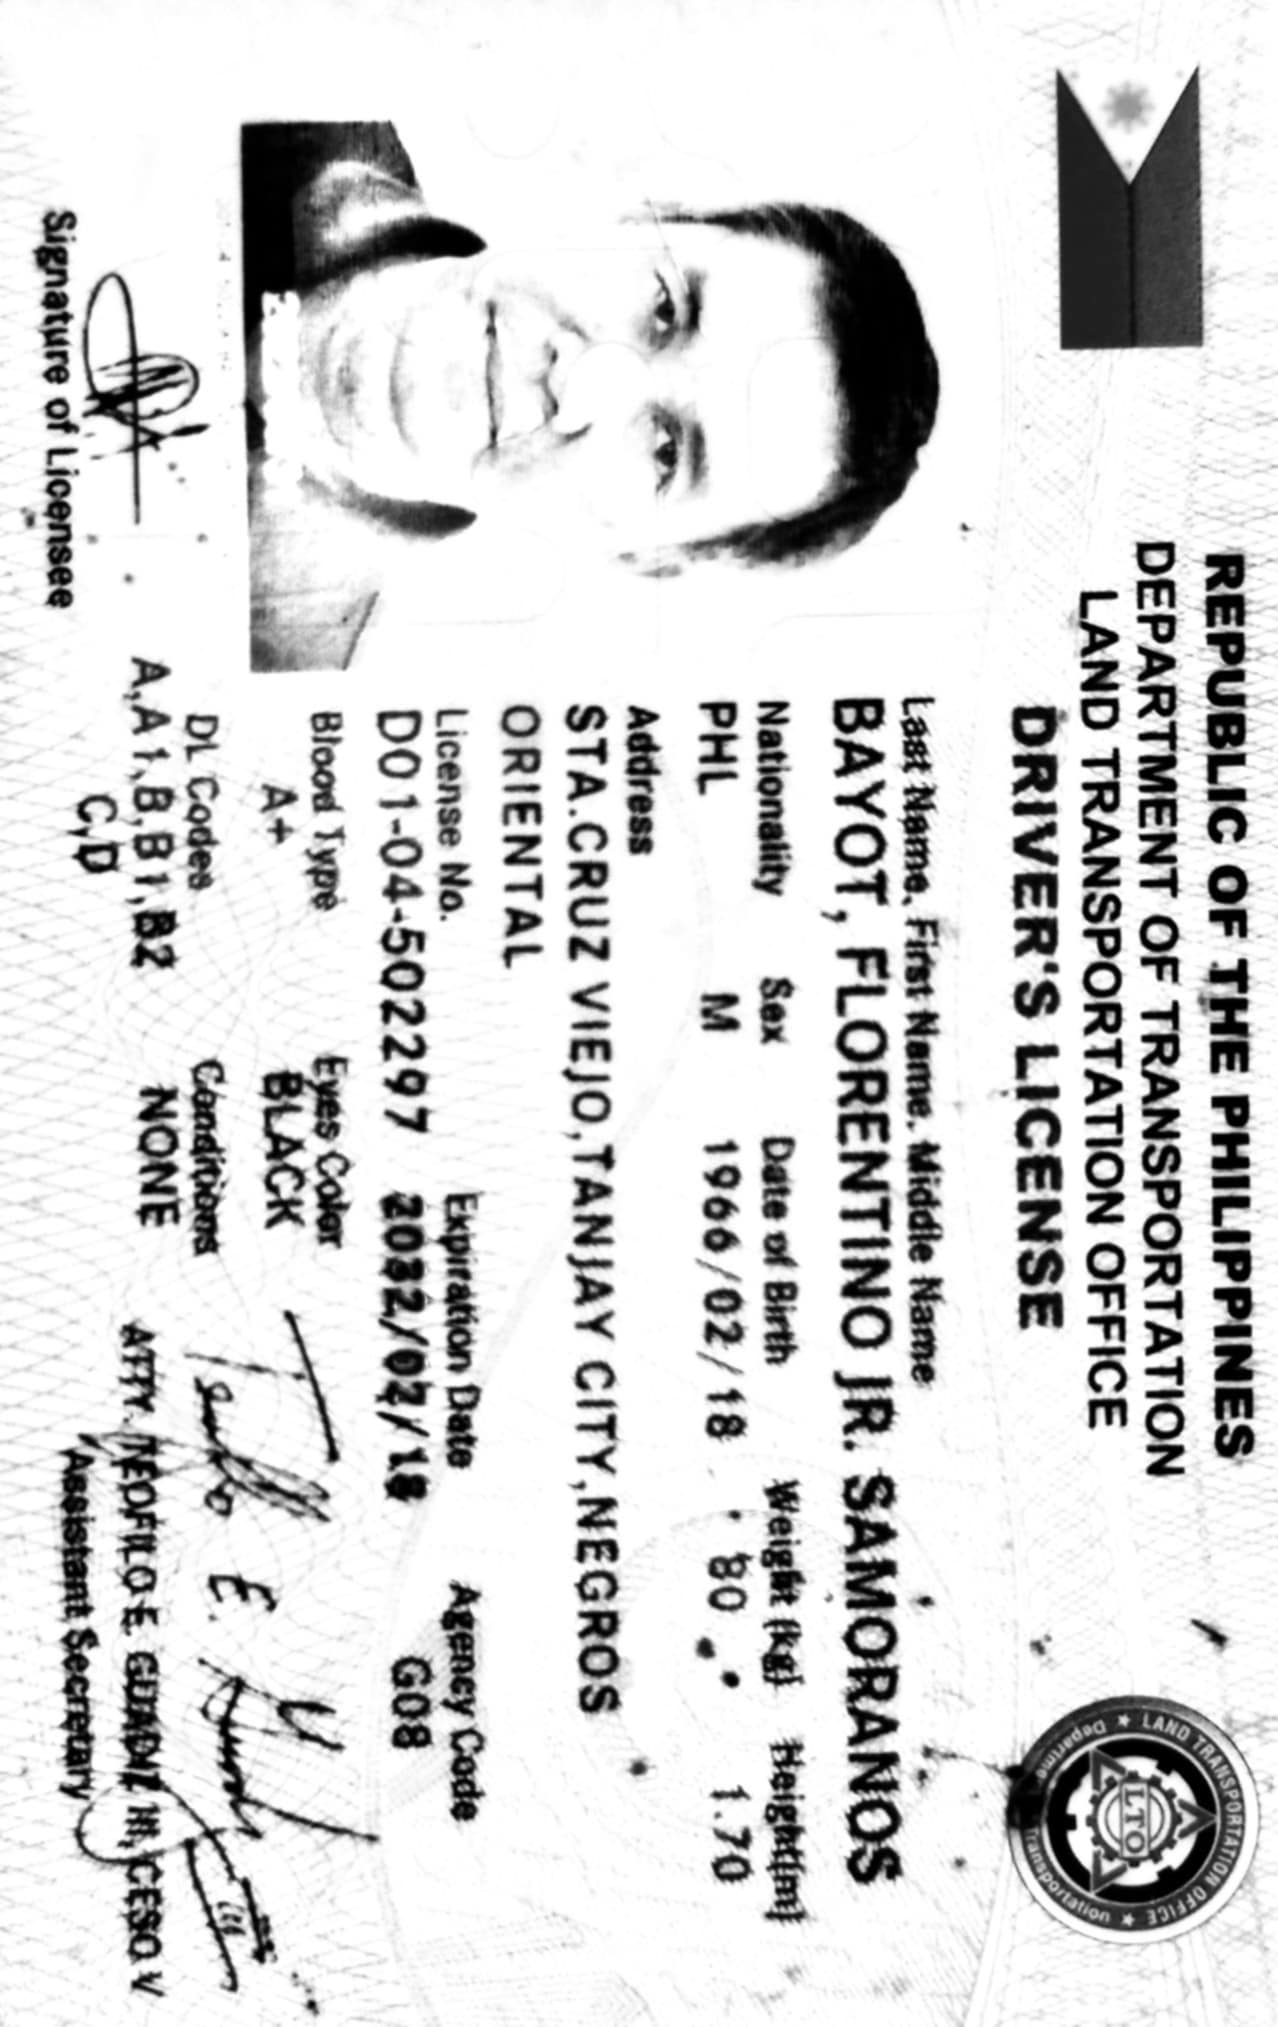 REPUBLIC OF THE PHILIPPINES
DEPARTMENT OF TRANSPORTATION
LAND TRANSPORTATION OFFICE
DRIVER'S LICENSE
LAND TRANSPORTATION OFFICE
LTO
Last Name, First Name, Middle Name
BAYOT, FLORENTINO JR. SAMORANOS
Nationality Sex Date of Birth Weight (kg) Height(m)
PHL M 1966/02/18 80 1.70
Address
STA.CRUZ VIEJO,TANJAY CITY,NEGROS
ORIENTAL
License No. Expiration Date Agency Code
D01-04-502297 /02/18 G08
Blood Type Eyes Color
A+ BLACK
DL Codes Conditions
A,A1,B,B1,B2 NONE
C,D
Signature of Licensee
ATTY. TEOFILO E. GUADIZ III, CESO V
Assistant Secretary